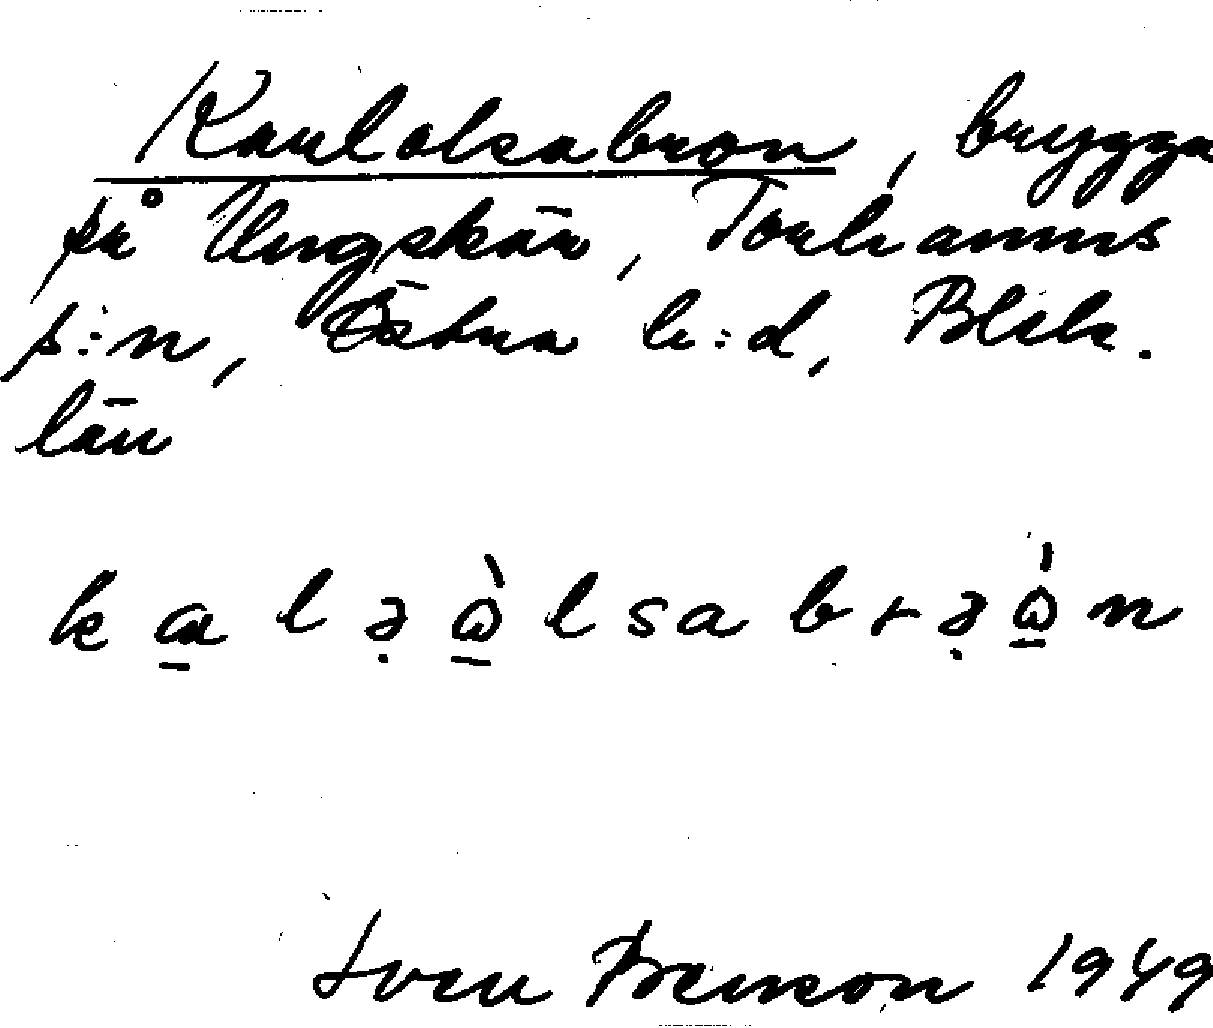 Karlolsabron, brygga
på Ungskär, Torhamns
s:n, Östra h:d, Blek.
län
Sven Benson 1949